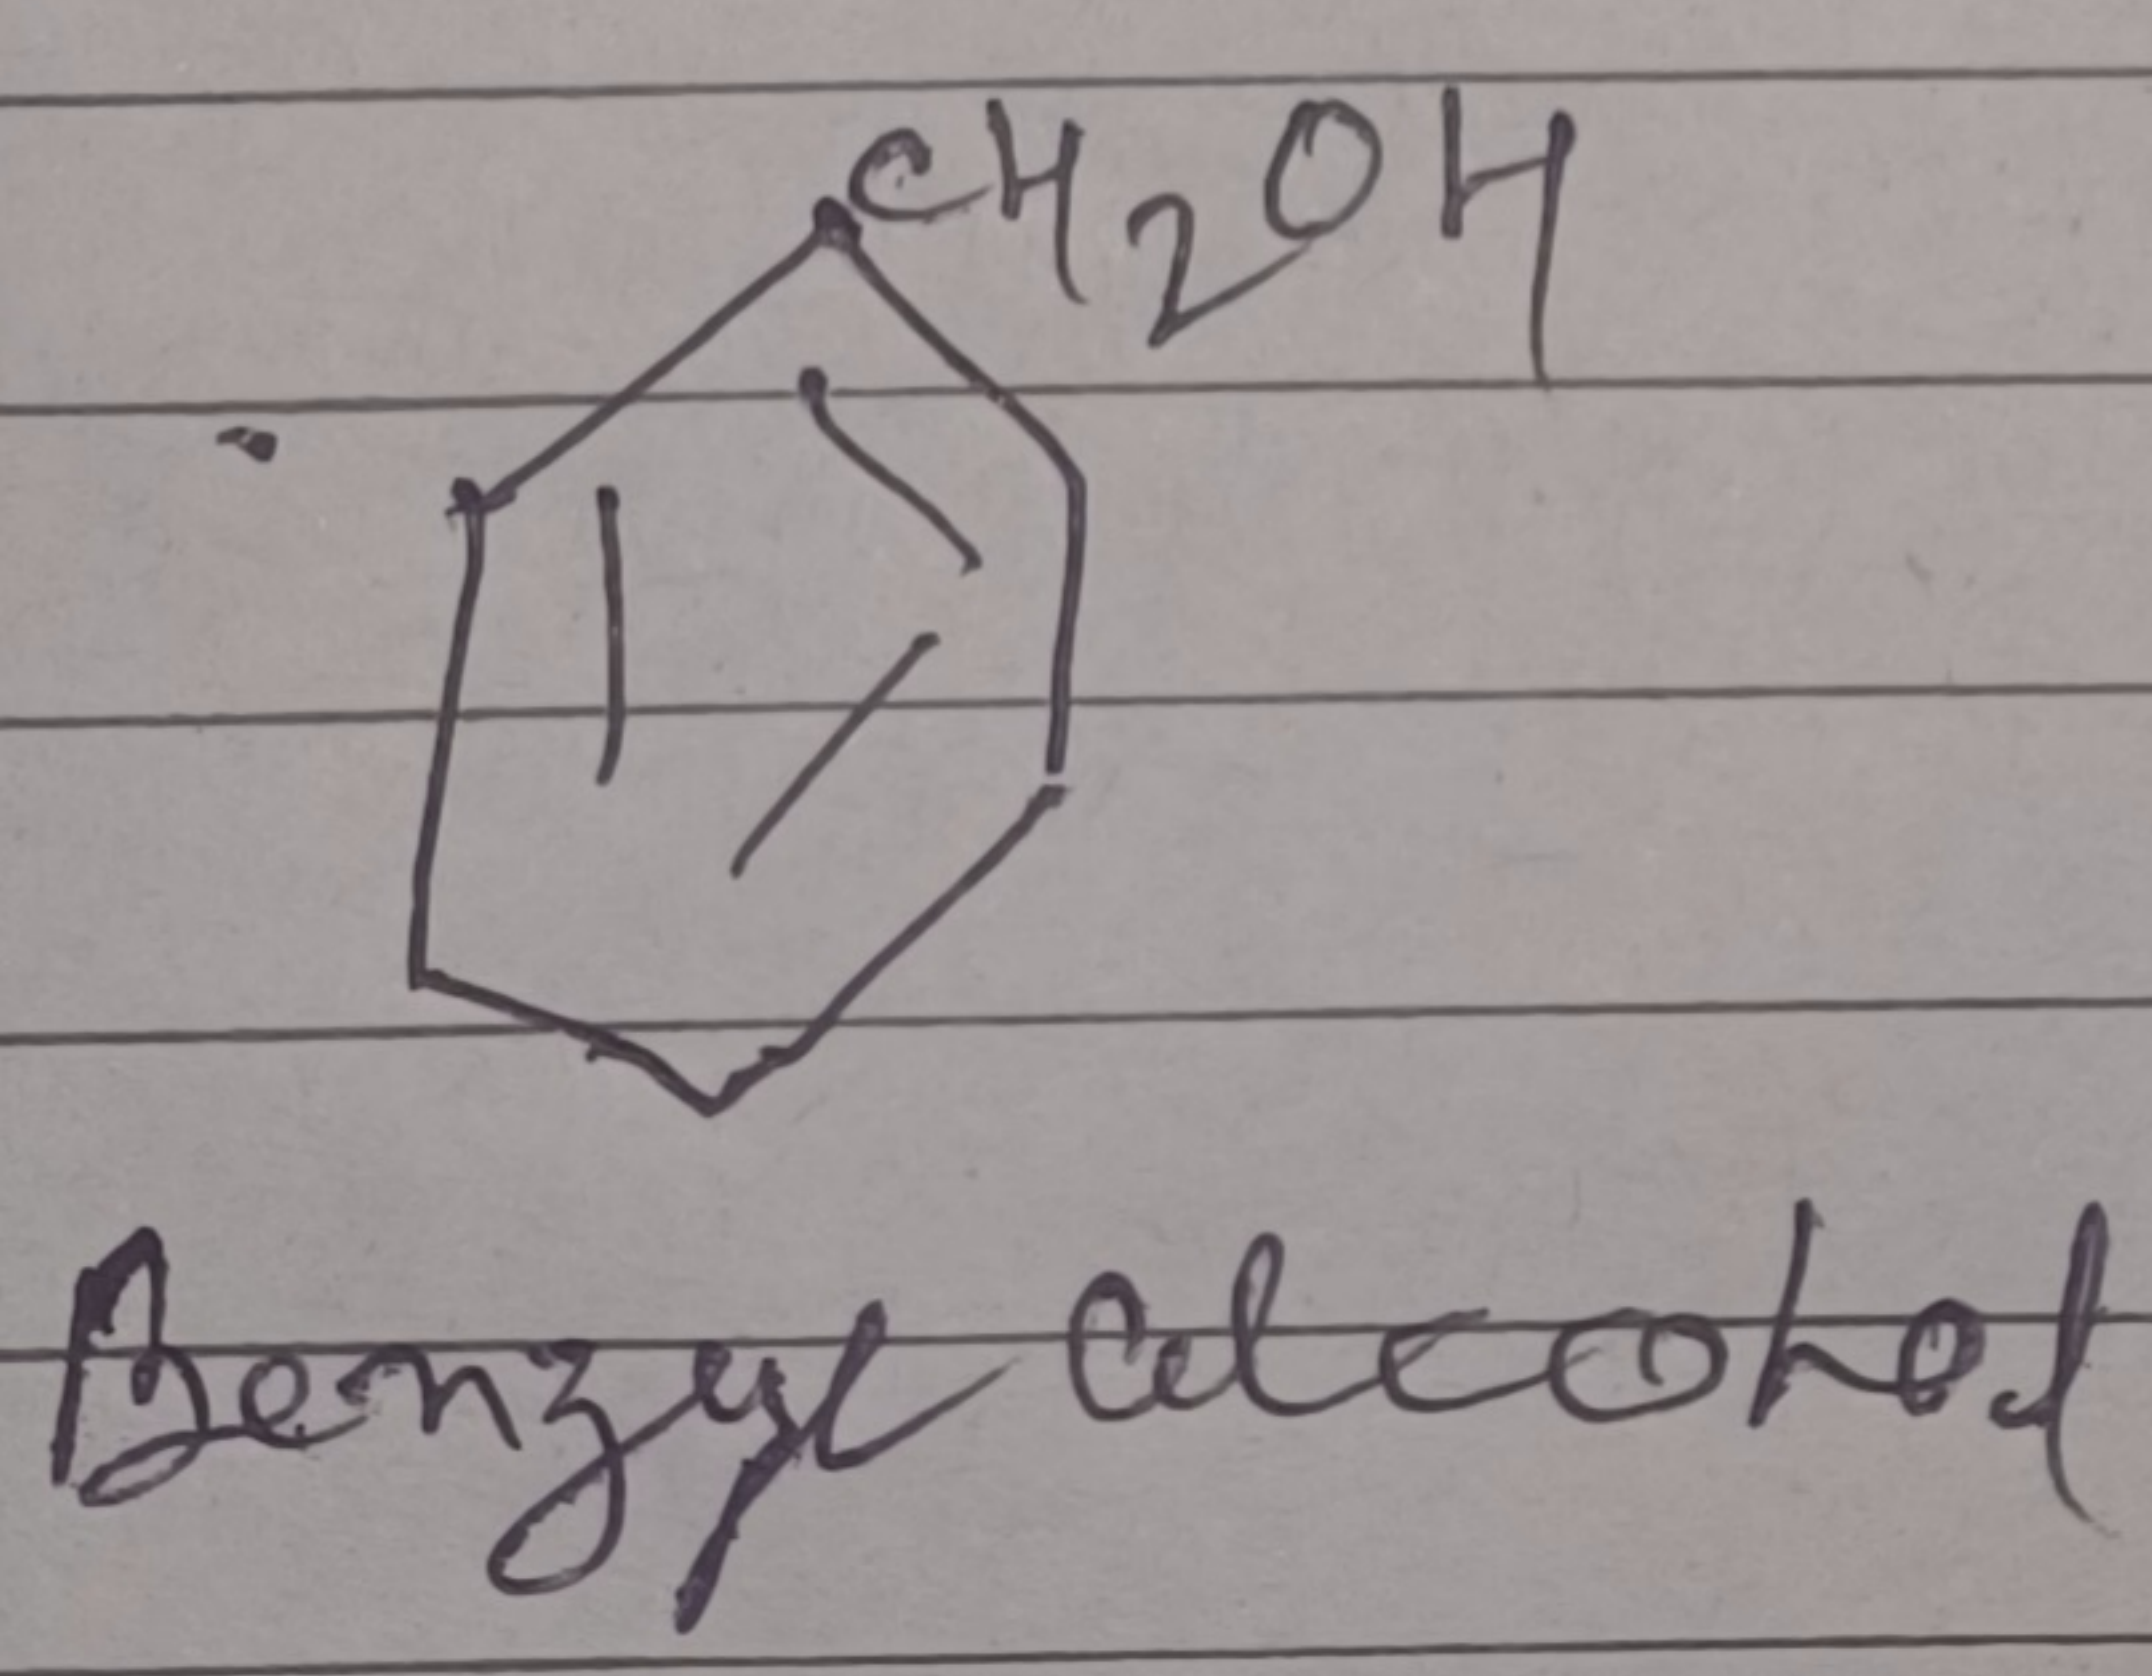 CH2OH
Benzyl alcohol